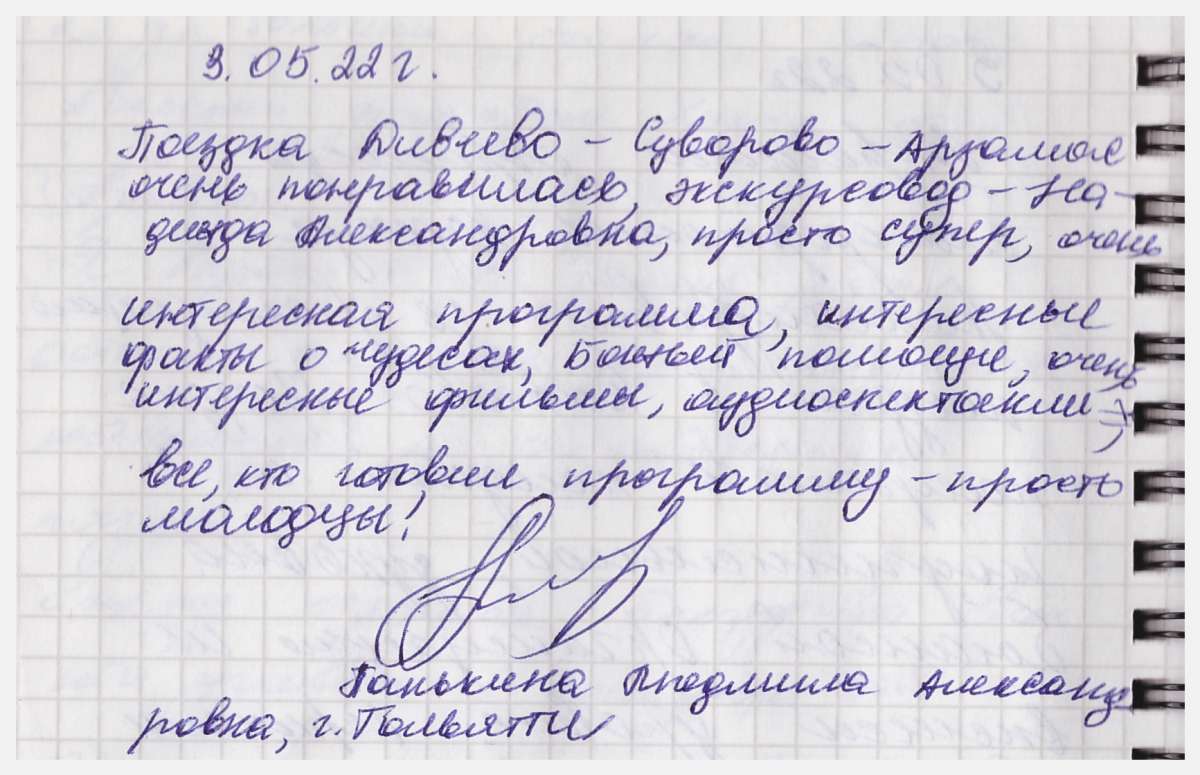 3.05.22г.
Поездка Дивеево – Суворово – Арзамас
очень понравилась, экскурсовод – На-
дежда Александровна, просто супер, очень
интересная программа, интересные
факты о чудесах, Божьей помощи, очень
интересные фильмы, аудиоспектакли,
все, кто готовил программу – просто
молодцы!
Панькина Людмила Александ
ровна, г. Тольятти